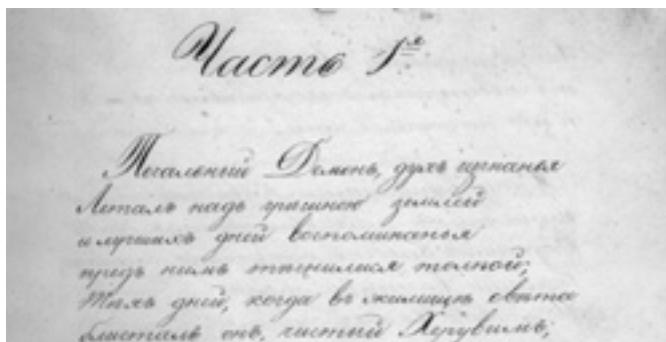 Часть 1я
Печальный Демонъ, духъ изгнанья
Леталъ надъ грѣшною землей
и лучшихъ дней воспоминанья
предъ нимъ тѣснилися толпой;
Тѣхъ дней, когда въ жилищѣ свѣта
блисталъ онъ, чистый Херувимъ;